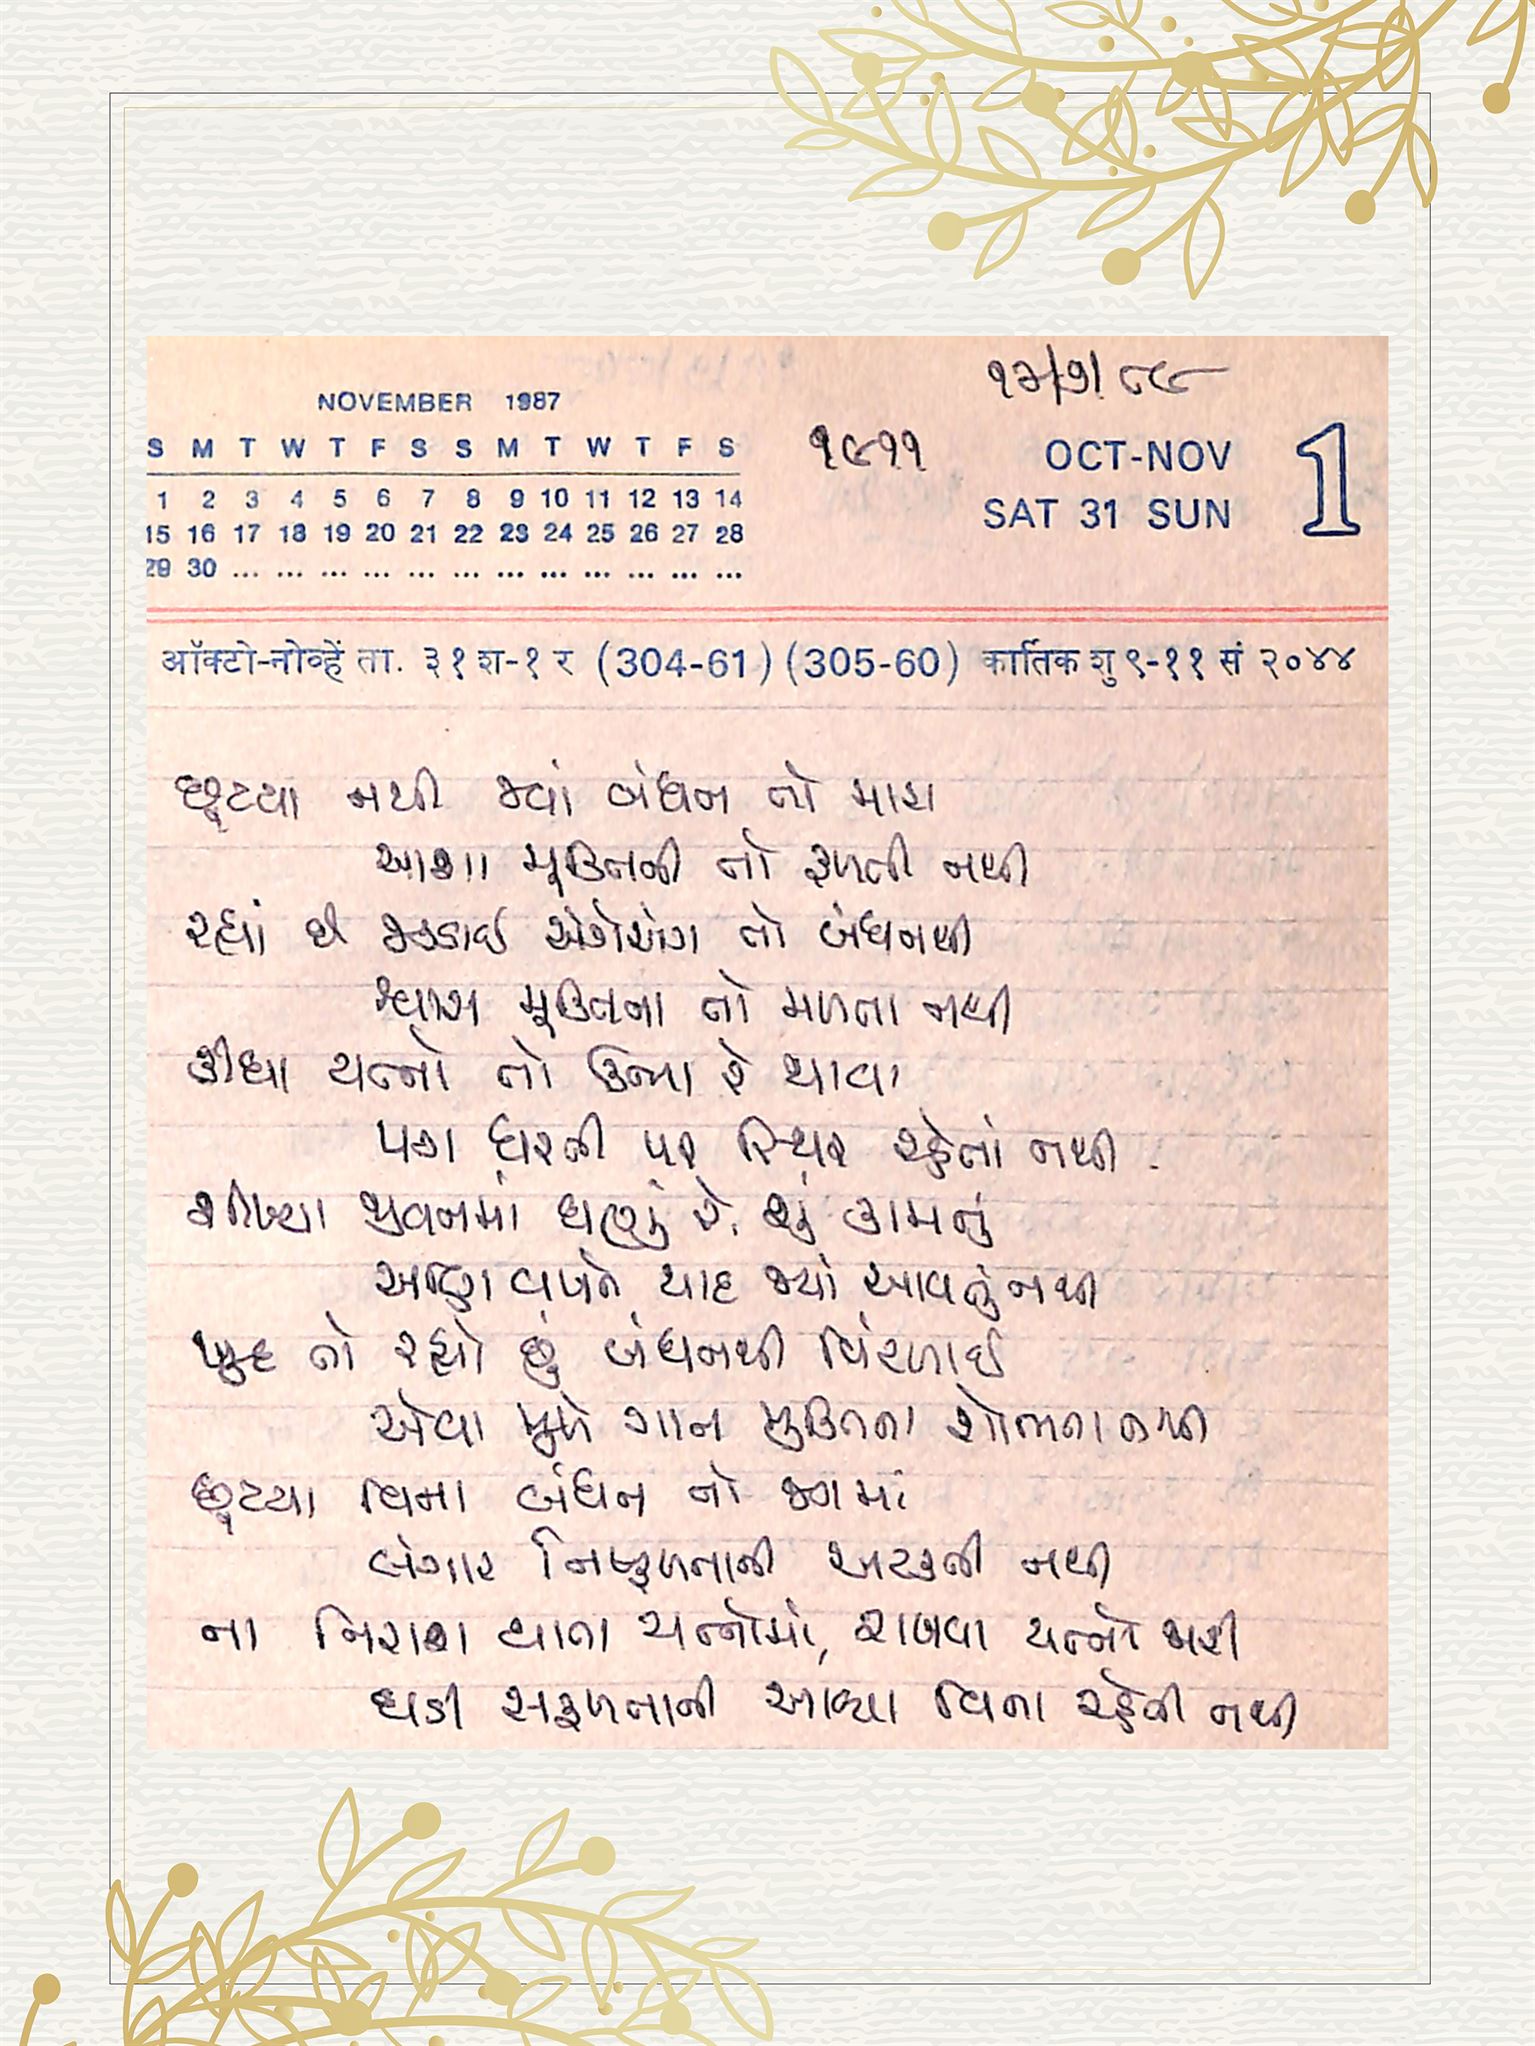 ૧૩/૭/૮૯
NOVEMBER 1987
S M T W T F S S M T W T F S
1 2 3 4 5 6 7 8 9 10 11 12 13 14
15 16 17 18 19 20 21 22 23 24 25 26 27 28
29 30 ... ... ... ... ... ... ... ... ... ... ... ...
૧૯૧૧
OCT-NOV 1
SAT 31 SUN
ऑक्टो-नोव्हें ता. ३१ श-१ र (304-61) (305-60) कार्तिक शु ९-११ सं २०४४
છૂટયા નથી જ્યાં બંધન તો મારા
આશા મૂક્તિની તો ફળતી નથી
રહ્યાં છે જકડાઈ અંગેઅંગ તો બંધનથી
શ્વાસ મૂક્તિના તો મળતા નથી
કીધા યત્નો તો ઉભા રે થાવા
પગ ધરતી પર સ્થિર રહેતાં નથી.
શીખ્યા જીવનમાં ઘણું રે, શું કામનું
અણી વખતે યાદ જ્યાં આવતું નથી
ખુદ તો રહ્યો છું બંધનથી વિંટળાઈ
એવા મુખે ગાન મુક્તિના શોભતા નથી
છૂટયા વિના બંધન તો જગમાં
લંગાર નિષ્ફળતાની અટકતી નથી
ના નિરાશ થાતા યત્નોમાં, રાખવા યત્નો જારી
ઘડી સફળતાની આવ્યા વિના રહેતી નથી